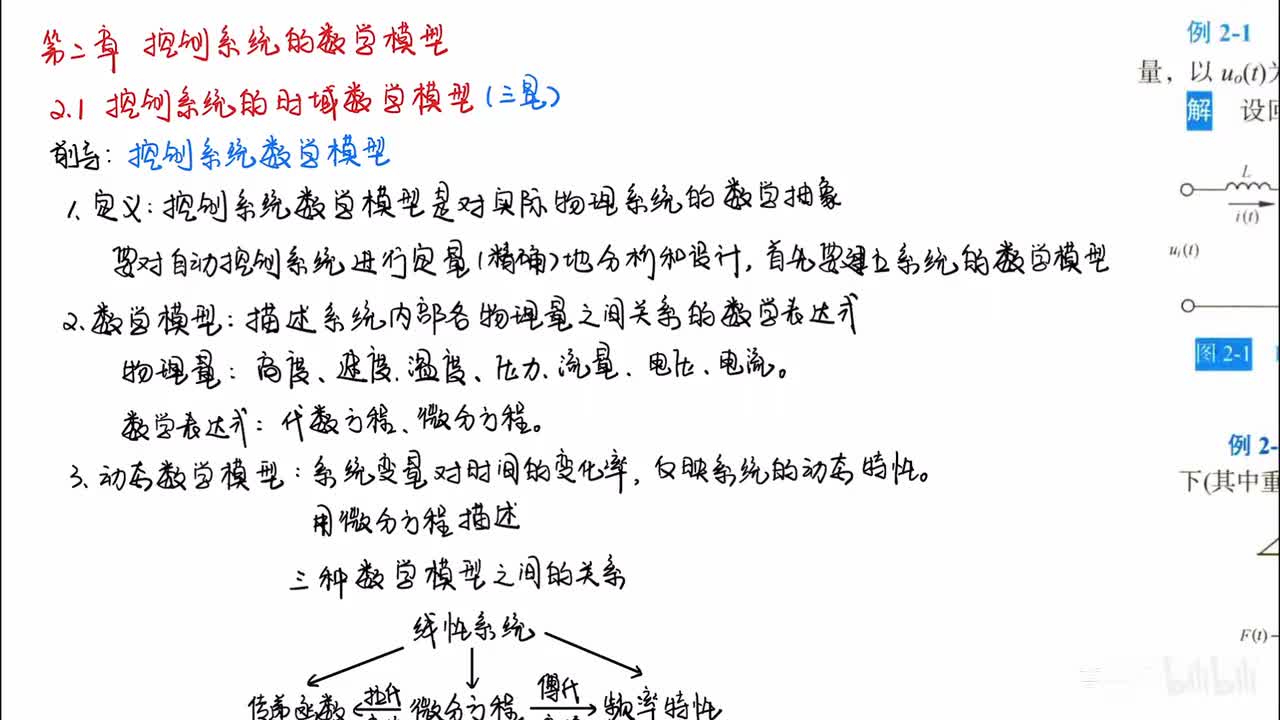 第二章 控制系统的数学模型
2.1 控制系统的时域数学模型(三星)
前导：控制系统数学模型
1、定义：控制系统数学模型是对实际物理系统的数学抽象
要对自动控制系统进行定量(精确)地分析和设计，首先要建立系统的数学模型
2、数学模型：描述系统内部各物理量之间关系的数学表达式
物理量：高度、速度、温度、压力、流量、电压、电流。
数学表达式：代数方程、微分方程。
3、动态数学模型：系统变量对时间的变化率，反映系统的动态特性。
用微分方程描述
三种数学模型之间的关系
线性系统
传递函数 拉氏 微分方程 傅氏 频率特性
例 2-1
量，以 uo(t)为
解 设回
L
i(t)
ui(t)
图 2-1
例 2-
下(其中重
F(t)
bilibili